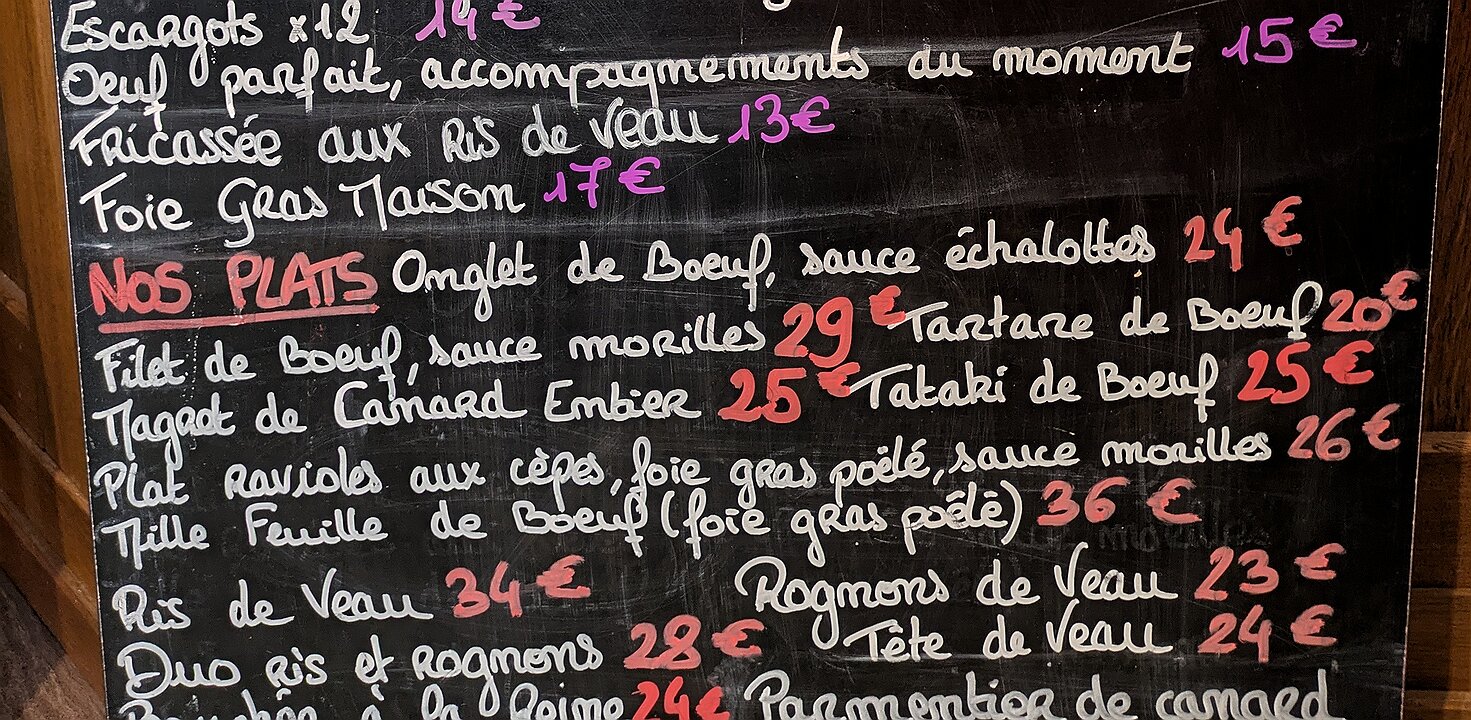 Escargots x12 14€
Oeuf parfait, accompagnements du moment 15€
Fricassée aux Ris de Veau 13€
Foie Gras Maison 17€
NOS PLATS Onglet de Boeuf, sauce échalottes 24€
Filet de Boeuf, sauce morilles 29€ Tartare de Boeuf 20€
Magret de Canard Entier 25€ Tataki de Boeuf 25€
Plat Ravioles aux cèpes, foie gras poêlé, sauce morilles 26€
Mille Feuille de Boeuf (foie gras poêlé) 36€
Ris de Veau 34€ Rognons de Veau 23€
Duo Ris et Rognons 28€ Tête de Veau 24€
à la Reine 24€ Parmentier de canard